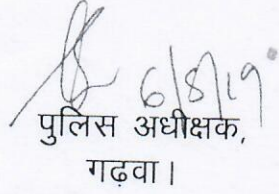 6/8/19
पुलिस अधीक्षक,
गढ़वा।